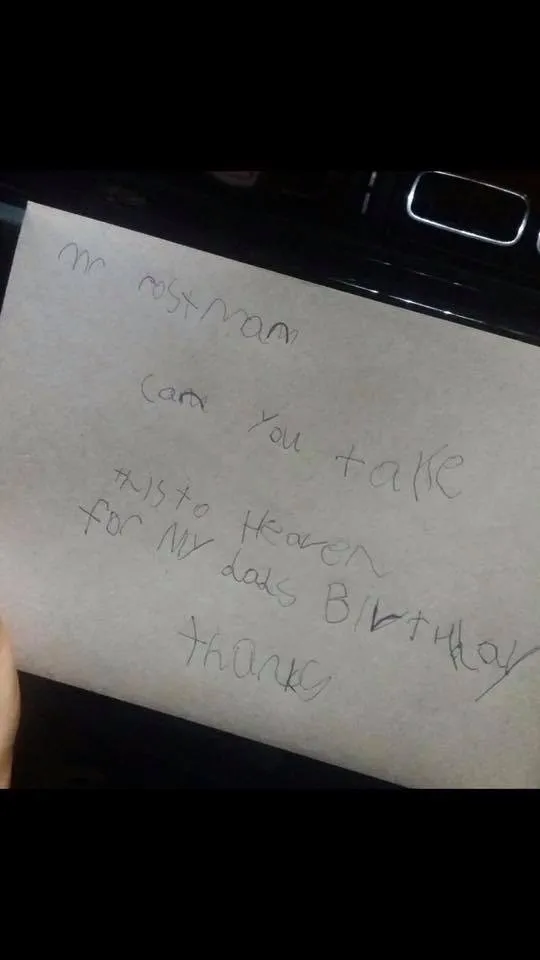 Mr Postman
Can you take
this to Heaven
for My dads BirtHday
thanks